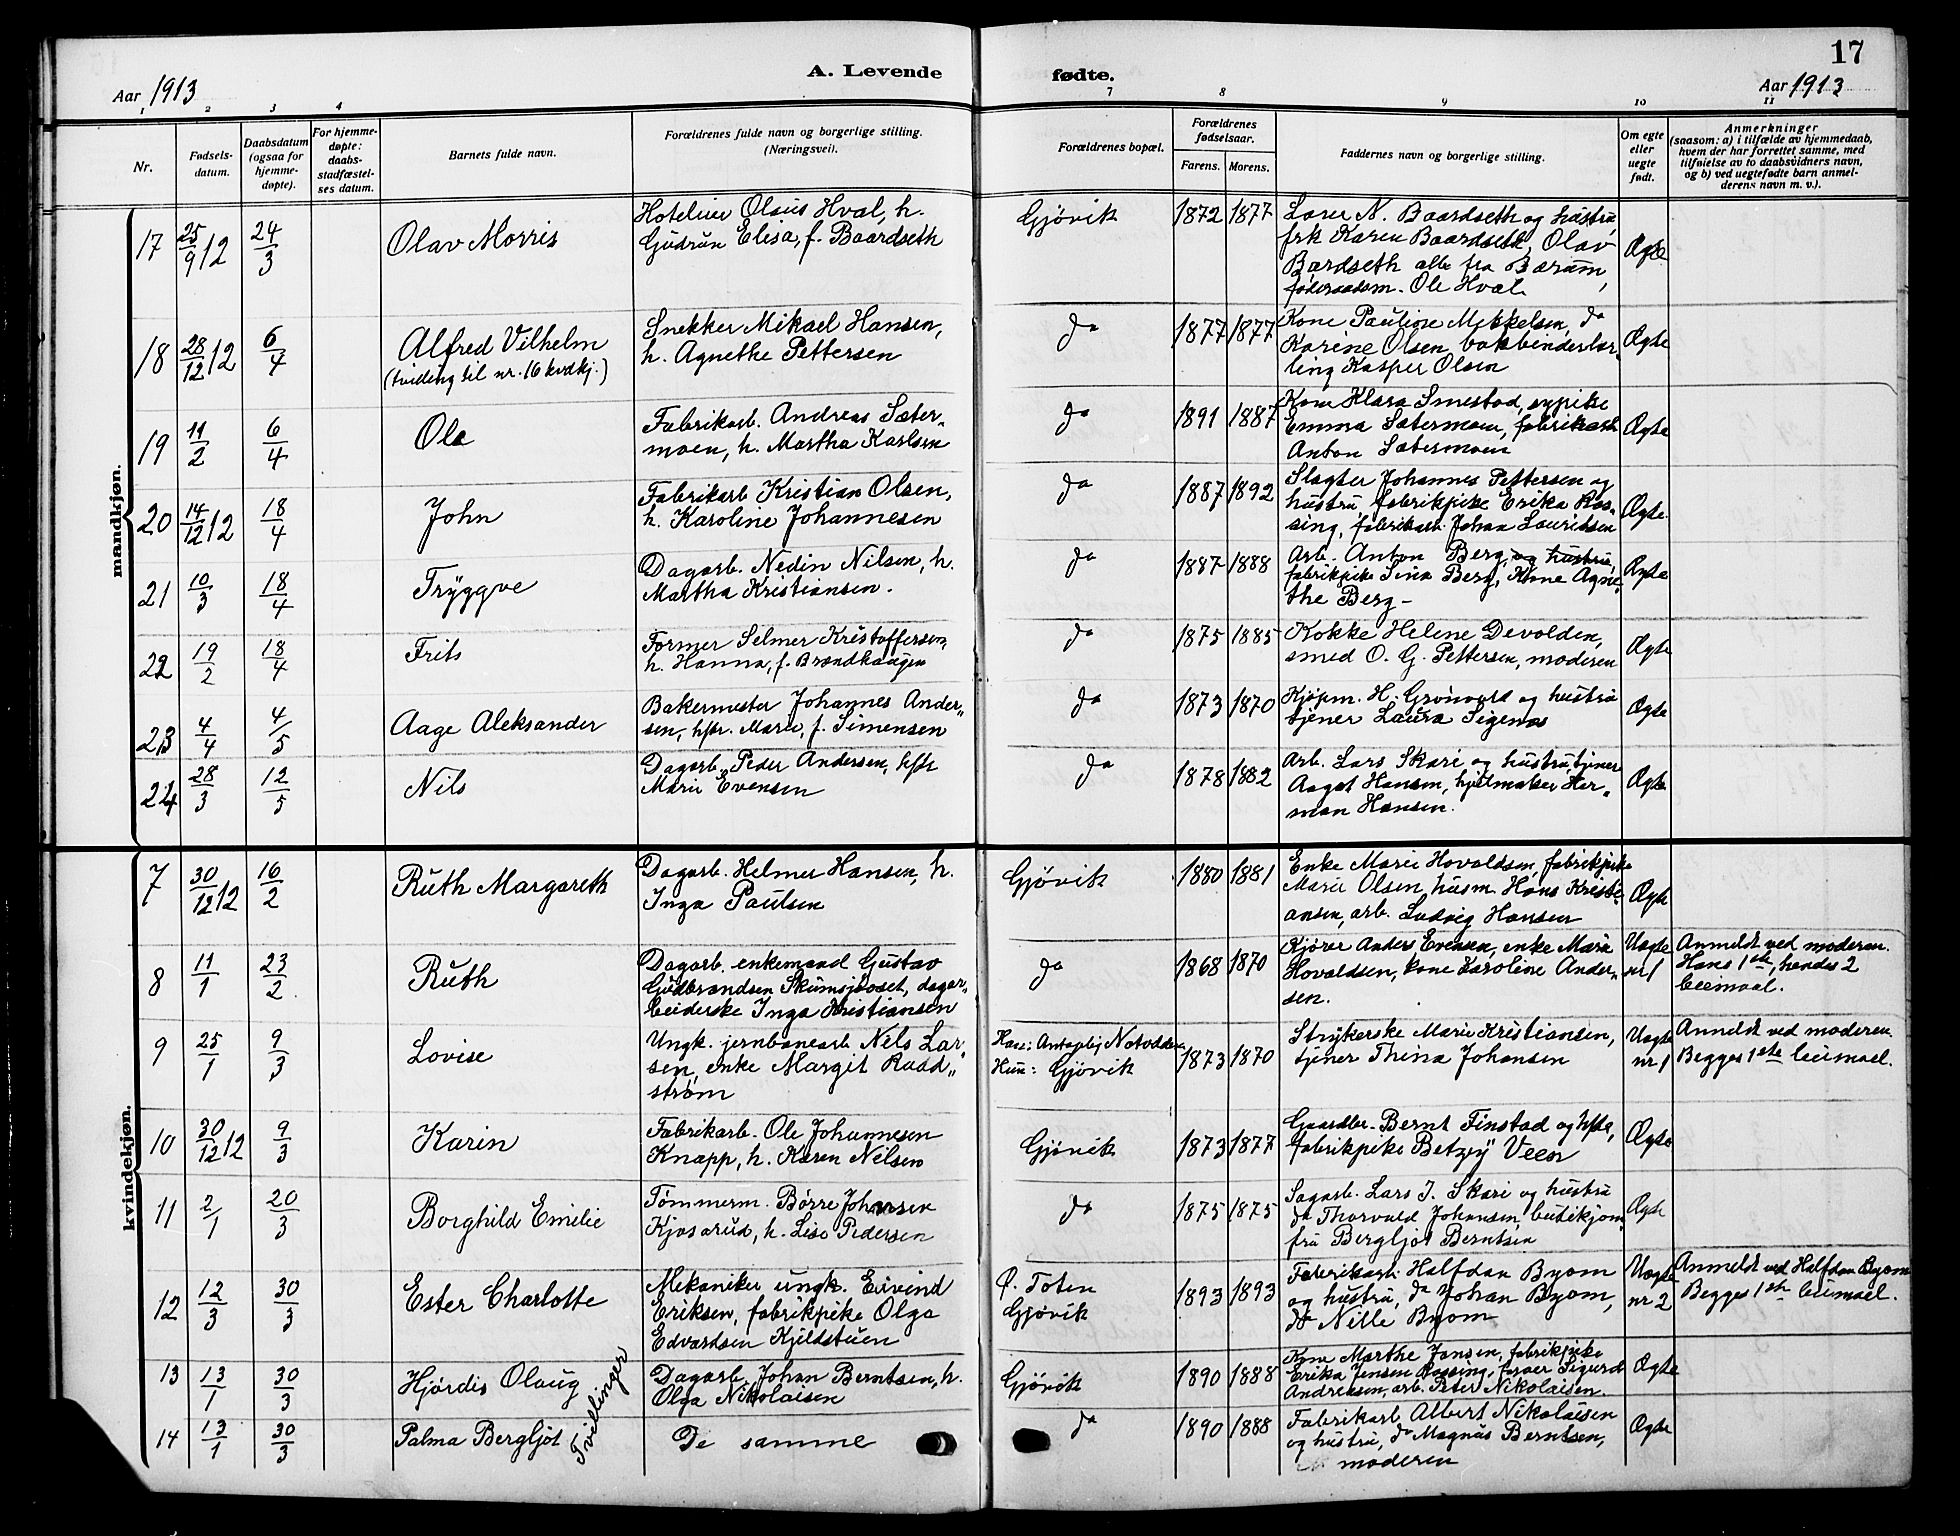 17
A. Levende fødte.
Aar 1913
Aar 1913
1 2 3 4 7 8 9 10 11
Nr.
Fødsels-
datum.
Daabsdatum
(ogsaa for
hjemme-
døpte).
For hjemme-
døpte:
daabs-
stadfæstel-
ses datum.
Barnets fulde navn.
Forældrenes fulde navn og borgerlige stilling.
(Næringsvei).
Forældrenes bopæl.
Forældrenes
fødselsaar.
Farens. Morens.
Faddernes navn og borgerlige stilling.
Om egte
eller
uegte
født.
Anmerkninger
(saasom: a) i tilfælde av hjemmedaab,
hvem der har forrettet samme, med
tilføielse av to daabsvidners navn,
og b) ved uegtefødte barn anmel-
derens navn m. v.).
mandkjøn.
17 25/9 12 24/3 Olav Morris
Hotelier Olaus Hval, h.
Gudrun Elisa, f. Baardseth
Gjøvik 1872 1877
Lærer N. Baardseth og hustru,
frk Karen Baardseth, Olav
Bardseth alle fra Bærum,
føderaadsm. Ole Hval
Ægte
18 28/12 12 6/4 Alfred Vilhelm
(tvilling til nr. 16 kvdkj.)
Snekker Mikael Hansen,
h. Agnethe Pettersen
do 1877 1877
Kone Pauline Mikkelsen, do
Karine Olsen, bokbinderlær-
ling Kasper Olsen
Ægte
19 11/2 6/4 Ola
Fabrikarb. Andreas Sæter-
moen, h. Martha Karlsen
do 1891 1887
Kone Klara Smestad, sypike
Emma Sætermoen, fabrikarb
Anton Sætermoen
Ægte
20 14/12 12 18/4 John
Fabrikarb Kristian Olsen,
h. Karoline Johannesen
do 1887 1892
Slagter Johannes Pettersen og
hustru, fabrikpike Erika Ros-
sing, fabrikarb. Johan Lauritsen
Ægte.
21 10/3 18/4 Tryggve
Dagarb. Nedin Nilsen, h.
Martha Kristiansen.
do 1887 1888
Arb. Anton Berg, og hustru,
fabrikpike Sina Berg, Kone Agne-
the Berg-
Ægte
22 19/2 18/4 Frits
Former Selmer Kristoffersen,
h. Hanna, f. Brændhaugen
do 1875 1885
Kokke Helene Devolden,
smed O. G. Pettersen, moderen
Ægte
23 4/4 4/5 Aage Aleksander
Bakermester Johannes Ander-
sen, hstr. Marie, f. Simensen
do 1873 1870
Kjøpm. H. Grønvold og hustru
tjener Laura Sigenes
Ægte
24 28/3 12/5 Nils
Dagarb. Peder Andersen, hstr
Marie Evensen
do 1878 1882
Arb. Lars Skari og hustru, tjener
Aagot Hansen, hjulmaker Her-
man Hansen.
Ægte
kvindekjøn.
7 30/12 12 16/2 Ruth Margareth
Dagarb. Helmer Hansen, h.
Inga Paulsen
Gjøvik 1880 1881
Enke Marie Hovaldsen, fabrikpike
Marie Olsen, husm. Hans Kristi-
ansen, arb. Ludvig Hansen
Ægte
8 11/1 23/2 Ruth
Dagarb. enkemand Gustav
Gudbrandsen Skumsjøvoset, dagar-
beiderske Inga Kristiansen
do 1868 1870
Kjører Anders Evensen, enke Marie
Hovaldsen, kone Karoline Ander-
sen.
Uegte
nr 1
Anmeldt ved moderen.
Hans 1ste, hendes 2
leiemaal.
9 25/1 9/3 Lovise
Ungk. jernbanearb Nils Lar-
sen, enke Margit Raad-
strøm
Han: Antagelig Notodden
Hun: Gjøvik 1873 1870
Strykerske Marie Kristiansen,
tjener Thina Johansen
Uegte
nr 1
Anmeldt ved moderen
Begges 1ste leiemael.
10 30/12 12 9/3 Karin
Fabrikarb. Ole Johannesen
Knapp, h. Karen Nilsen
Gjøvik 1873 1877
Gaardbr. Bernt Finstad og hstr,
fabrikpike Betzy Veen
Ægte
11 2/1 20/3 Borghild Emilie
Tømmerm. Børre Johansen
Kjøsarud, h. Lise Pedersen
do 1875 1875
Sagarb. Lars J. Skari og hustru
do Thorvald Johansen, butikjom-
fru Bergljot Berntsen
Ægte
12 12/3 30/3 Ester Charlotte
Mekaniker ungk. Eivind
Eriksen, fabrikpike Olga
Edvardsen Kjeldstuen
Ø. Toten
Gjøvik 1893 1893
Fabrikarb Halfdan Byom
og hustru, do Johan Byom,
do Nille Byom
Uegte
nr 2
Anmeldt ved Halfdan Byom
Begges 1ste leiemael.
13 13/1 30/3 Hjørdis Olaug
Dagarb. Johan Berntsen, h.
Olga Nikolaisen
Gjøvik 1890 1888
Kone Marthe Jansen, fabrikpike
Erika Jensen Rossing, Sigurd
Andreasen, arb. Peter Nikolaisen.
Ægte
14 13/1 30/3 Palma Bergljot
Tvillinger
De samme
do 1890 1888
Fabrikarb Albert Nikolaisen
og hustru, do Magnus Berntsen,
moderen
Ægte